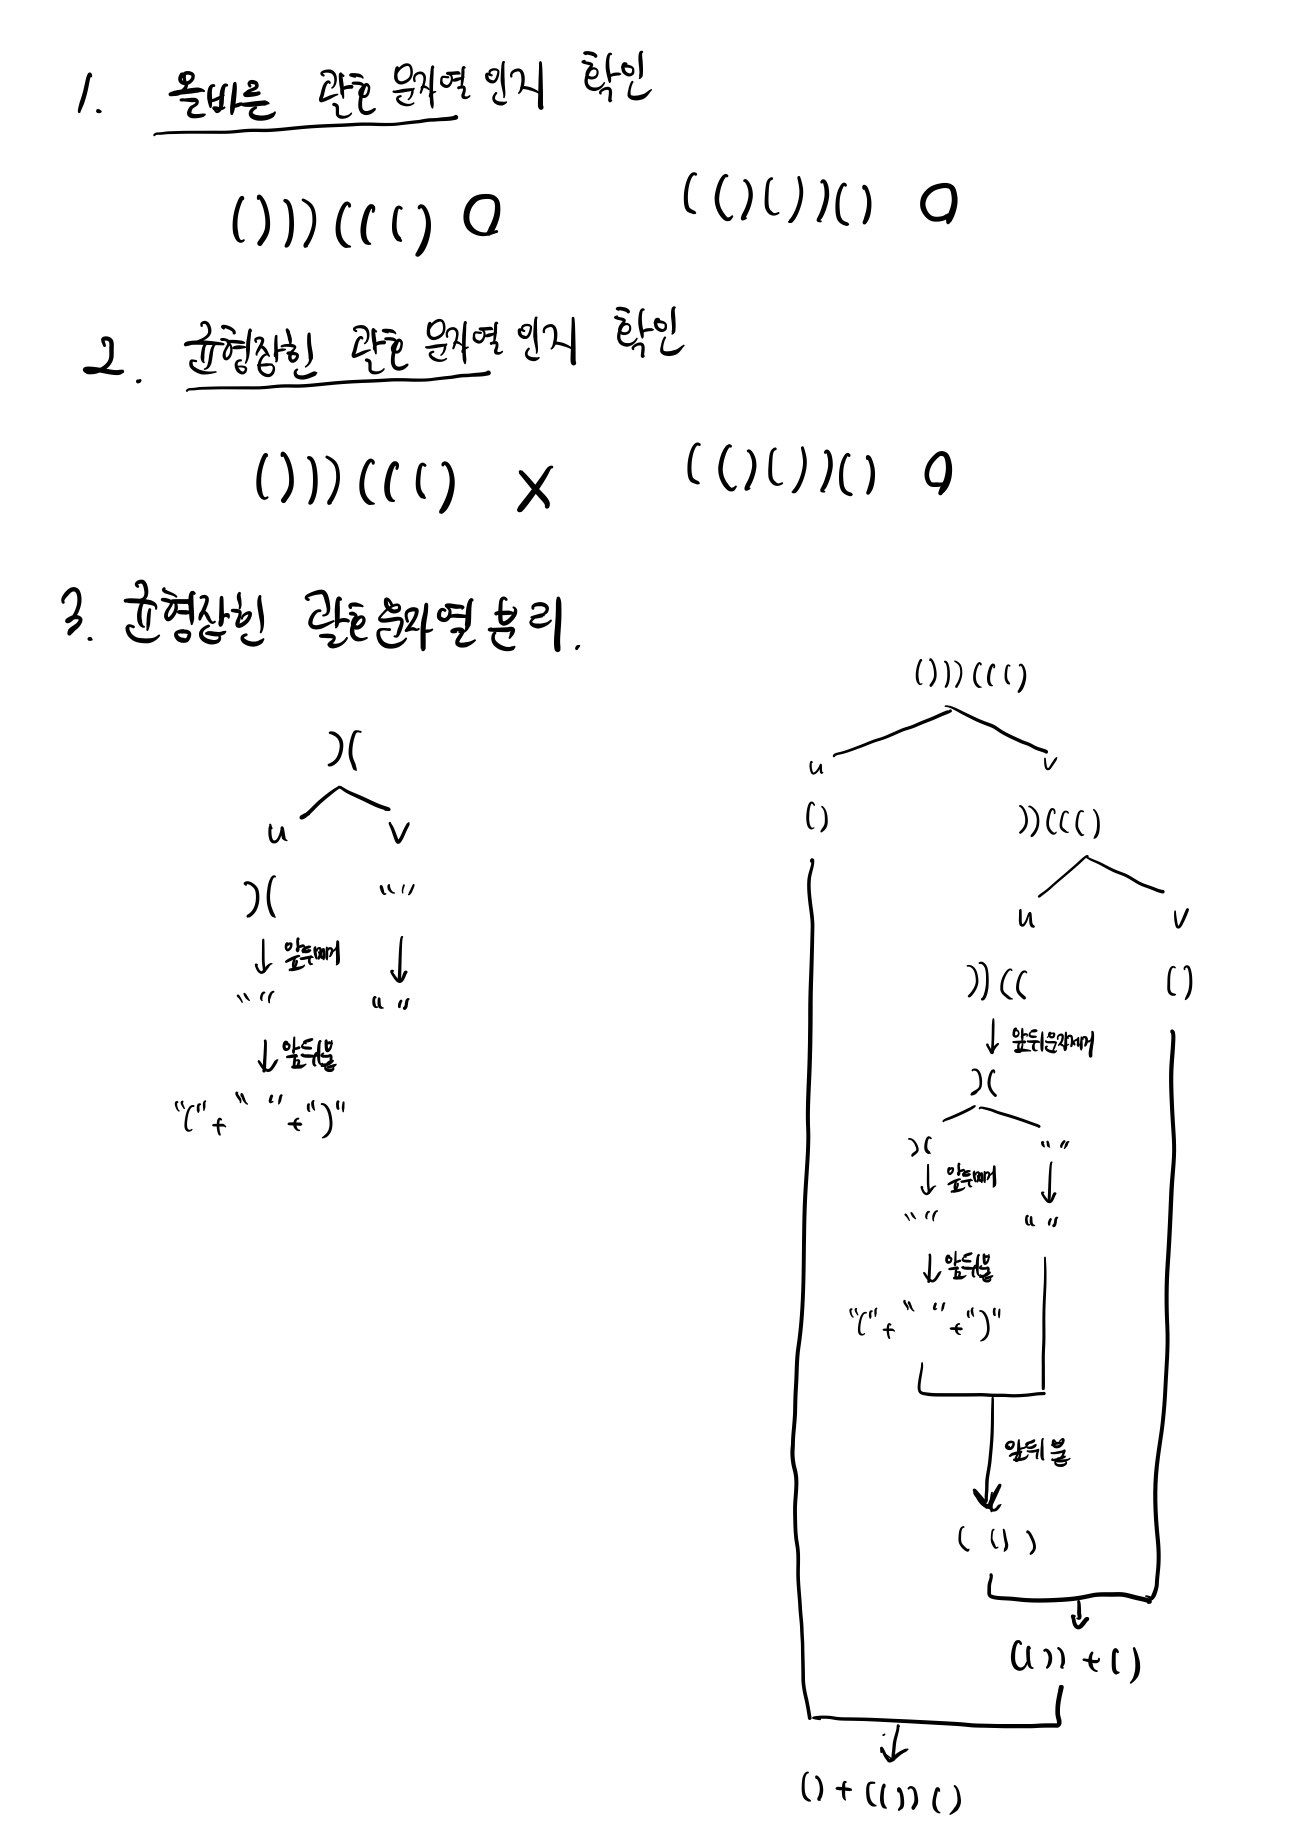 1. 올바른 괄호 문자열인지 확인
()))((() O
(()())() O
2. 균형잡힌 괄호 문자열인지 확인
()))((() X
(()())() O
3. 균형잡힌 괄호문자열 분리.
)(
u v
)( ""
앞뒤제거
"" ""
앞뒤붙
"("+ " " +")"
()))((()
u v
() ))((()
u v
))(( ()
앞뒤문자제거
)(
)( ""
앞뒤제거
"" ""
앞뒤붙
"("+ " " +")"
앞뒤 붙
(())
(())+()
()+(())()